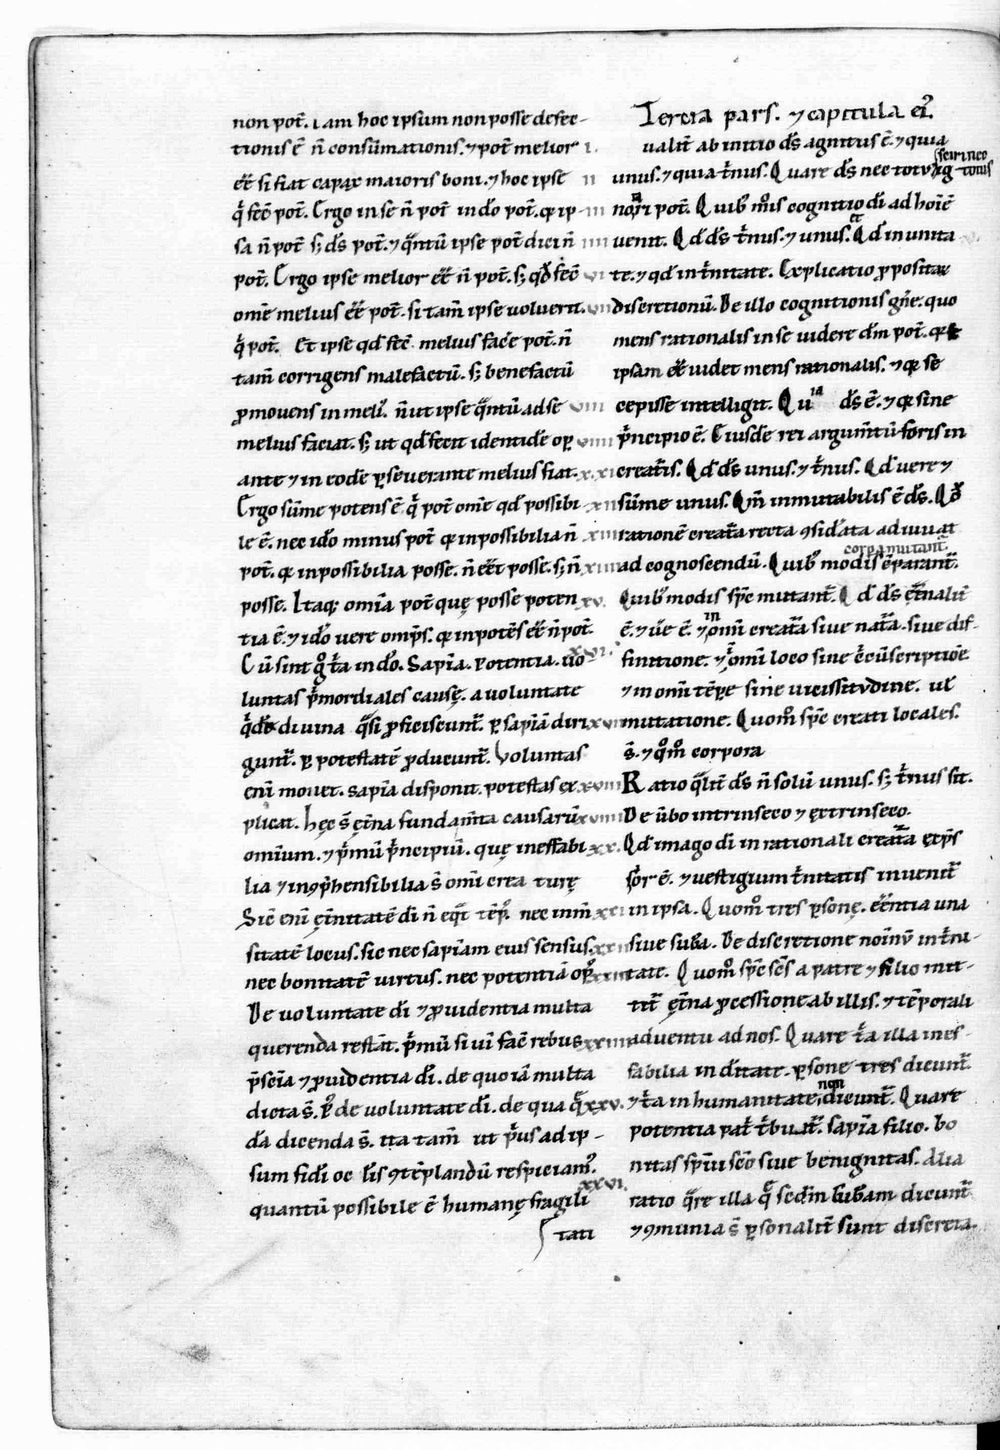 non pot̄. iam hoc ipsum non posse defec-
tionis ē n̄ consūmationis. ⁊ pot̄ melior
eē si fiat capax maioris boni. ⁊ hoc ipse
q̄ fec̄ pot̄. Ergo in se n̄ pot̄ in do pot̄. q ip-
sa n̄ pot̄ s; ds̄ pot̄. ⁊ q̄ntū ipse pot̄ dici n̄
pot̄. Ergo ipse melior eē n̄ pot̄. s; qđ fec̄
om̄e melius eē pot̄. si tam̄ ipse voluerit.
q̄ pot̄. Et ipse qđ fec̄ melius fac̄e pot̄. n̄
tam̄ corrigens malefactū. s; benefactū
ꝓmovens in meli᷒. n̄ ut ipse q̄ntū ad se
melius faciat. s; ut qđ fecit identidē oꝑ
ante ⁊ in eodē ꝑseverante melius fiat.
Ergo sūme potens ē q̄ pot̄ om̄e qđ possibi
le ē. nec iđo minus pot̄ q inpossibilia n̄
pot̄. q inpossibilia posse. n̄ eēt posse. s; n̄
posse. Itaq; om̄ia pot̄ quę posse poten
tia ē. ⁊ iđo vere omp̄s. q inpotēs eē n̄ pot̄.
Cū sint g̊ t̄a in do. Sap̄ia. Potentia. vo
luntas p̄mordiales causę. a voluntate
q̄de divina q̄si ꝓficiscunt̄. ꝑ sapiā diri
gunt̄. ꝑ potestatē ꝓducunt̄. Voluntas
eni movet. sap̄ia disponit. potestas ex
plicat. hęc s̄ et̄na fundam̄ta causarū
omnium. ⁊ p̄mū p̄ncipiū. quę ineffabi
lia ⁊ inꝯp̄hensibilia s̄ om̄i crea turę
Sic eni et̄nitatē di n̄ eq̄t tēp᷒. nec inm̄
sitatē locus. sic nec sapiam eius sensus.
nec bonitatē virtus. nec potentiā op᷒
De voluntate di ⁊ ꝓvidentia multa
querenda restāt. p̄mū si vi fac̄ rebus
p̄sciā ⁊ ꝓvidentia di. de quo iā multa
dicta s̄. P᷒ de voluntate di. de qua q̄
đa dicenda s̄. ita tam̄ ut p̄us ad ip-
sum fidi oc lis ꝯtēplandū respiciam᷒.
quantū possibile ē humanę fragili
tati
Tercia pars. ⁊ capitula ei᷒.
i. valit̄ ab initio ds̄ agnitus ē. ⁊ quia
ii unus. ⁊ quia t̄nus. Quare ds̄ nec totus
iii nori pot̄. Quib᷒ m̊is cognitio di ad hoīē
iiii venit. Qđ ds̄ t̄nus. ⁊ unus. Qđ in unita
vi te. ⁊ qđ in t̄nitate. Explicatio ꝓpositae
vii discretionū. De illo cognitionis gn̄e. quo
mens rationalis in se videre dm̄ pot̄.
ipsam eē videt mens rationalis. ⁊ q se
viii cepisse intelligit. Quia ds̄ ē. ⁊ q sine
viiii p̄ncipio ē. Eiusdē rei argumtū foris in
x.xi creat̄is. Qđ ds̄ unus. ⁊ t̄nus. Qđ vere ⁊
xii sūme unus. Qm̄ inmutabilis ē ds̄. Qđ
xiii rationē creat̄a recta ꝯsiđata adiuvat
corpa mutant̄
xiiii ad cognoscendū. Quib᷒ modis
xv. Quib᷒ modis sp̄c mutant̄. Qđ ds̄ et̄nalit̄
ē. ⁊ ūe ē. ⁊ in om̄i creat̄a sive nat̄a. sive dif-
xvi. finitione. ⁊ om̄i loco sine c̄cūscriptiōe
⁊ in om̄i tēꝑe sine vicissitudine. ul
xvii mutatione. Quom̊ sp̄c creati locales.
s̄. ⁊ q̊m̊ corpora
xviii Ratio q̄lit̄ ds̄ n̄ solū unus. s; t̄nus sit.
xviiii De ūbo intrinseco ⁊ extrinseco.
xx. Qđ imago di in rationali creat̄a
⁊ vestigium t̄nitatis invenit̄
xxi in ipsa. Quom̊ tres ꝑsonę. eēntia una
xxii sive suba. De discretione noīnū in t̄ni-
xxiii tate. Quom̊ sp̄c sc̄s a patre ⁊ filio mit-
tit̄ et̄na ꝓcessione ab illis. ⁊ tēporali
xxiiii adventu ad nos. Quare t̄a illa ines-
fabilia in ditate. ꝑsone tres dicunt̄
xxv. ⁊ t̄a in humanitate non dicunt̄. Quare
potentia pat̄ t̄buit̄. sapiā filio. bo
nitas sp̄ui sc̄o sive benignitas. Alia
xxvi. ratio q̄re illa q̄ sedm̄ subam dicunt̄
⁊ ꝯmunia s̄ ꝑsonalit̄ sunt discreta